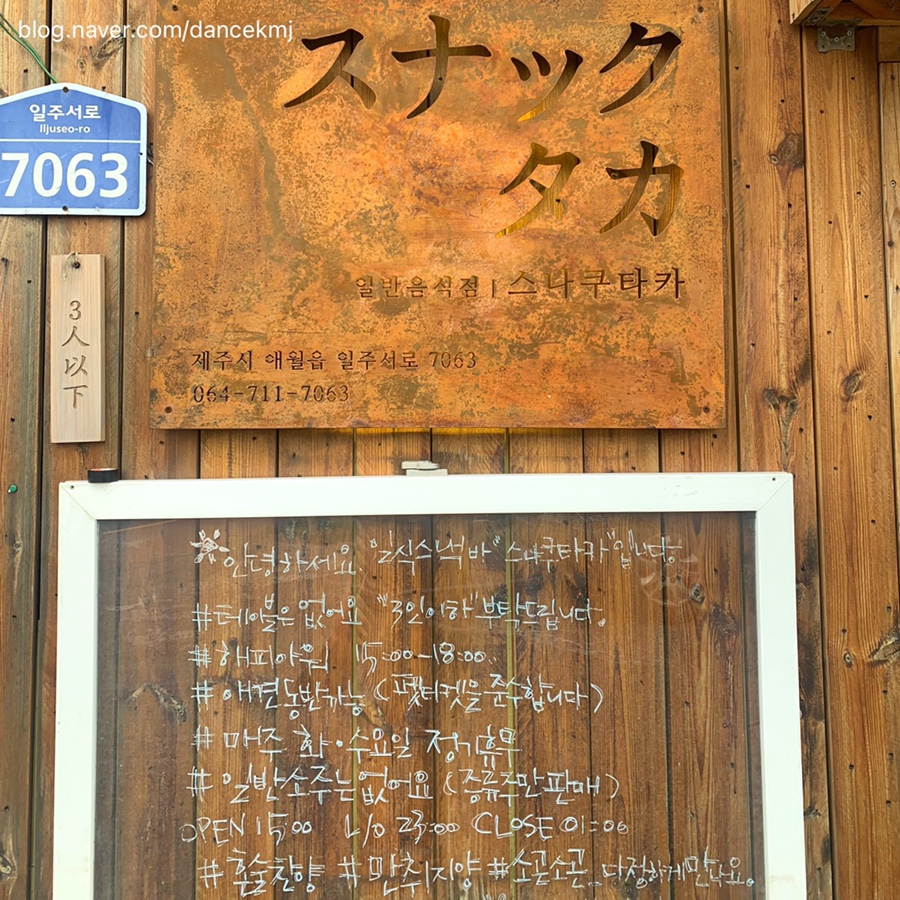 blog.naver.com/dancekmj
スナック
タカ
일주서로
Iljuseo-ro
7063
3人以下
일반음식점 | 스나쿠타카
제주시 애월읍 일주서로 7063
064-711-7063
안녕하세요 "일식스낵바" "스나쿠타카"입니다.
#테이블은 없어요 "3인이하" 부탁드립니다.
#해피아워 15:00-18:00..
#애견동반가능 (펫티켓을 준수합니다)
#매주 화·수요일 정기휴무
#일반소주는 없어요 (증류주만 판매)
OPEN 15:00 L/O 23:00 CLOSE 01:00
#혼술찬양 #만취지양 #소곤소곤.. 다정하게만나요.